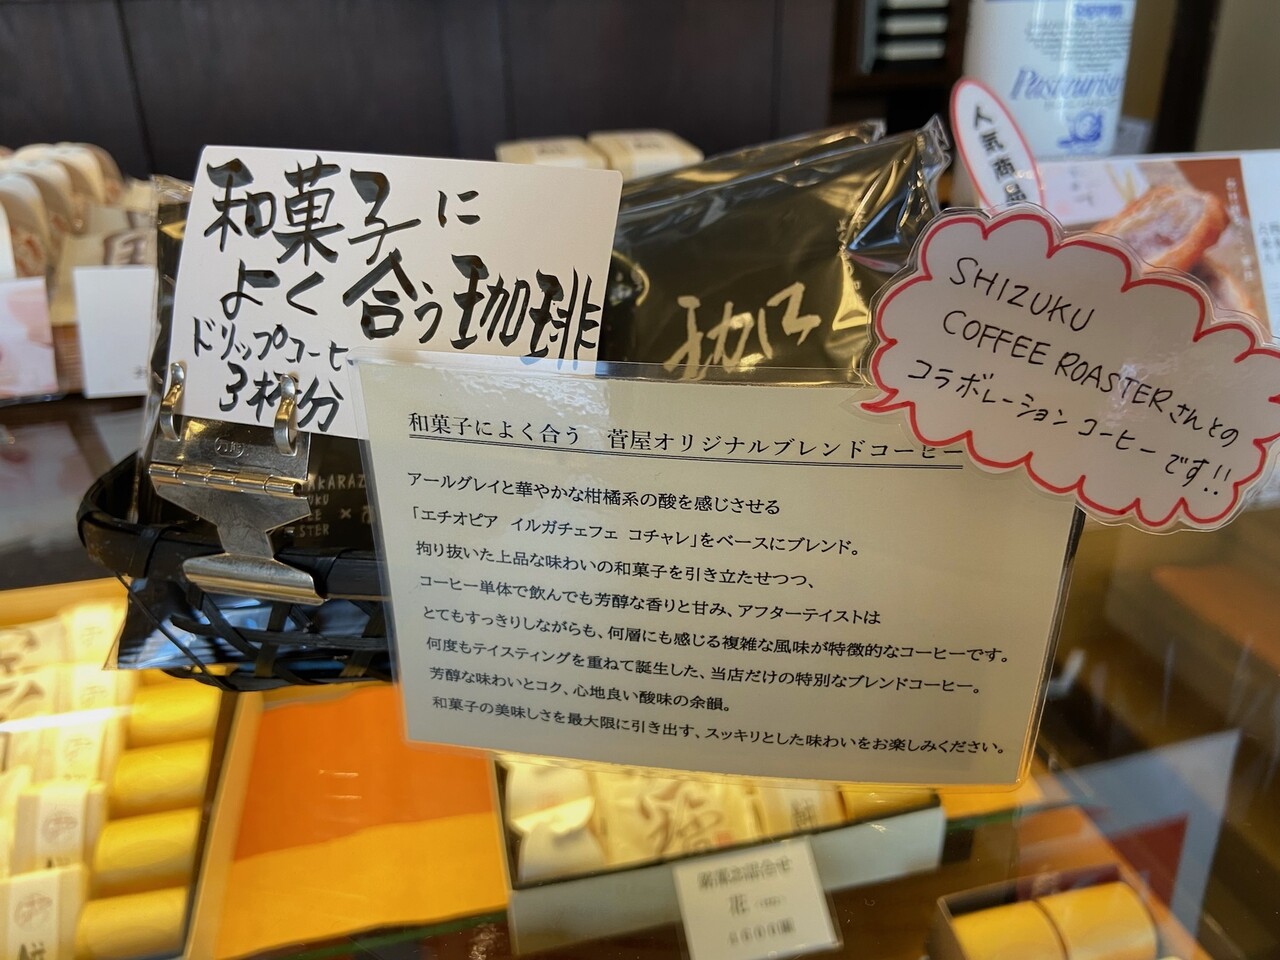 和菓子に
よく合う珈琲
ドリップコーヒー
3杯分
人気商品
SHIZUKU
COFFEE ROASTERさんとの
コラボレーションコーヒーです!!
和菓子によく合う　菅屋オリジナルブレンドコーヒー
アールグレイと華やかな柑橘系の酸を感じさせる
「エチオピア　イルガチェフェ　コチャレ」をベースにブレンド。
拘り抜いた上品な味わいの和菓子を引き立たせつつ、
コーヒー単体で飲んでも芳醇な香りと甘み、アフターテイストは
とてもすっきりしながらも、何層にも感じる複雑な風味が特徴的なコーヒーです。
何度もテイスティングを重ねて誕生した、当店だけの特別なブレンドコーヒー。
芳醇な味わいとコク、心地良い酸味の余韻。
和菓子の美味しさを最大限に引き出す、スッキリとした味わいをお楽しみください。